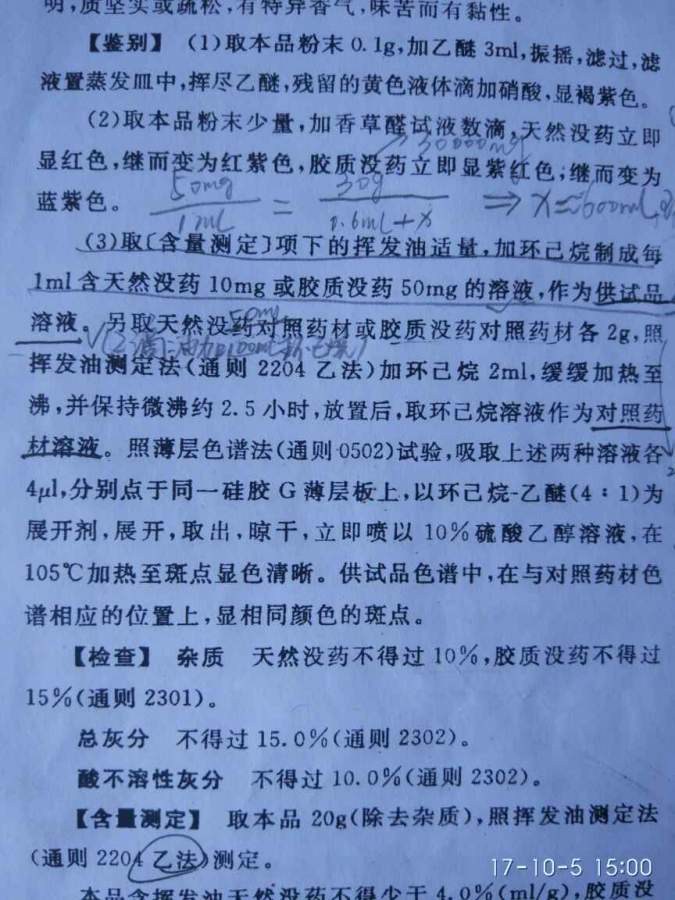 明,质坚实或疏松,有特异香气,味苦而有黏性。
【鉴别】 (1)取本品粉末 0.1g,加乙醚 3ml,振摇,滤过,滤
液置蒸发皿中,挥尽乙醚,残留的黄色液体滴加硝酸,显褐紫色。
(2)取本品粉末少量,加香草醛试液数滴,天然没药立即
30000mg
显红色,继而变为红紫色,胶质没药立即显紫红色,继而变为
蓝紫色。
50mg/1mL = 30g/0.6mL+x ⇒ x≈600mL
(3)取〔含量测定〕项下的挥发油适量,加环己烷制成每
1ml 含天然没药 10mg 或胶质没药 50mg 的溶液,作为供试品
溶液。另取天然没药对照药材或胶质没药对照药材各 2g,照
50ml
挥发油测定法(通则 2204 乙法)加环己烷 2ml,缓缓加热至
沸,并保持微沸约 2.5 小时,放置后,取环己烷溶液作为对照药
材溶液。照薄层色谱法(通则 0502)试验,吸取上述两种溶液各
4μl,分别点于同一硅胶 G 薄层板上,以环己烷-乙醚(4∶1)为
展开剂,展开,取出,晾干,立即喷以 10%硫酸乙醇溶液,在
105℃加热至斑点显色清晰。供试品色谱中,在与对照药材色
谱相应的位置上,显相同颜色的斑点。
【检查】 杂质 天然没药不得过 10%,胶质没药不得过
15%(通则 2301)。
总灰分 不得过 15.0%(通则 2302)。
酸不溶性灰分 不得过 10.0%(通则 2302)。
【含量测定】 取本品 20g(除去杂质),照挥发油测定法
(通则 2204 乙法)测定。
17-10-5 15:00
本品含挥发油天然没药不得少于 4.0%(ml/g),胶质没